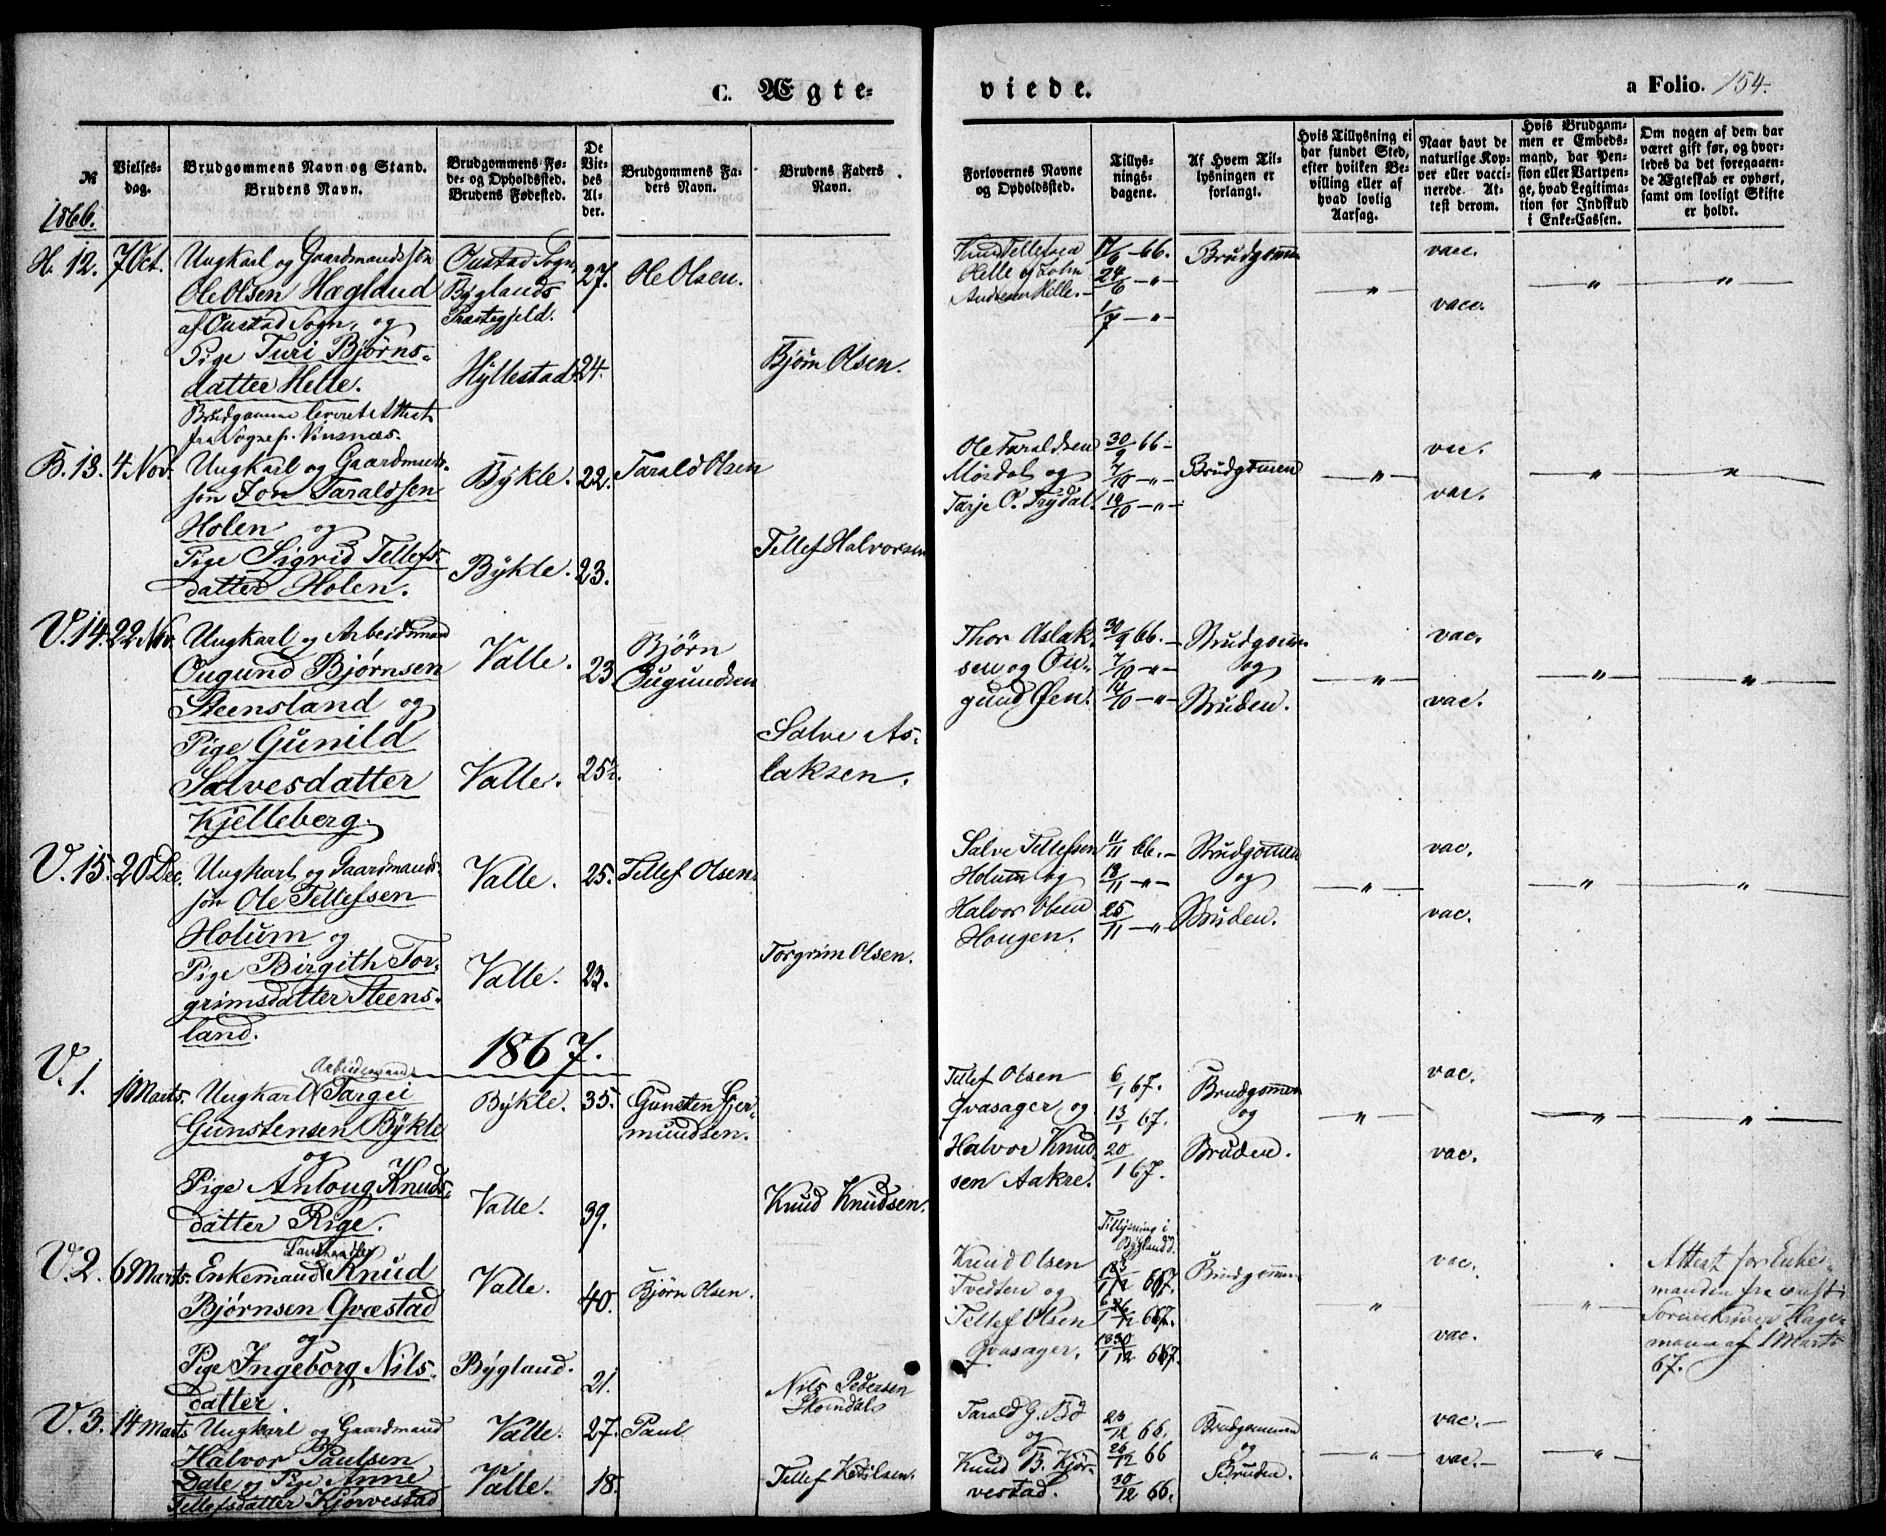 C. Ægte-
viede.
a Folio. 154.
№
Vielses-
dag.
Brudgommens Navn og Stand.
Brudens Navn.
Brudgommens Fø-
de- og Opholdssted.
Brudens Fødested.
De
Vie-
des
Al-
der.
Brudgommens Fa-
ders Navn.
Brudens Faders
Navn.
Forlovernes Navne
og Opholdssted.
Tillys-
nings-
dagene.
Af Hvem Til-
lysningen er
forlangt.
Hvis Tillysning ei
har fundet Sted,
efter hvilken Be-
villing eller af
hvad lovlig
Aarsag.
Naar havt de
naturlige Kop-
per eller vacci-
nerede. At-
test derom.
Hvis Brudgom-
men er Embeds-
mand, har Pen-
sion eller Vartpen-
ge, hvad Legitima-
tion for Indskud
i Enke-Cassen.
Om nogen af dem har
været gift før, og hvor-
ledes da det foregaaen-
de Ægteskab er ophørt,
samt om lovligt Skifte
er holdt.
1866.
H. 12. 7 Oct.
Ungkarl og Gaardmandssøn
Ole Olsen Hægland
af Oustad Sogn, og
Pige Turi Bjørns-
datter Helle.
Brudgommen leveret Attest
fra Sognepr. Vinsnæs.
Oustad Sogn,
Byglands
Præstegjeld.
Hyllestad
27.
24.
Ole Olsen.
Bjørn Olsen.
Knud Tellefsen
Helle og John
Andresen Helle.
17/6 - 66.
24/6 - " -
1/7 - " -
Brudgommen
"
vacc.
vacc.
"
"
B. 13. 4 Nov.
Ungkarl og Gaardmands-
søn Jon Taraldsen
Holen og
Pige Sigrid Tellefs-
datter Holen.
Bykle.
Bykle.
22.
23.
Tarald Olsen
Tellef Halvorsen
Ole Taraldsen
Mosdøl og
Tarje O. Trydal.
30/9 66 -
7/10 - " -
14/10 - " -
Brudgommen
"
vac.
vac.
"
"
V. 14. 22 Nov.
Ungkarl og Arbeidsmand
Ougund Bjørnsen
Steensland og
Pige Gunild
Salvesdatter
Kjelleberg.
Valle.
Valle.
23
25½.
Bjørn
Ougundsen
Salve As-
laksen.
Thor Aslak-
sen og Ou-
gund Øen.
30/9 66. -
7/10 - " -
14/10 - " -
Brudgommen
og
Bruden.
"
vac.
vac.
"
"
V. 15. 20 Dec.
Ungkarl og Gaardmands-
søn Ole Tellefsen
Holum og
Pige Birgith Tor-
grimsdatter Steens-
land.
Valle.
Valle.
25.
23.
Tellef Olsen.
Torgrim Olsen.
Salve Tellefsen
Holum og
Halvor Olsen
Hougen.
11/11 66. -
18/11 - " -
25/11 - " -
Brudgommen
og
Bruden.
"
vac.
vac.
"
"
1867.
V. 1.
1 Marts.
Arbeidsmand
Ungkarl Targei
Gunstensen Bykle
og
Pige Anloug Knuds-
datter Rige.
Bykle.
Valle.
35.
39.
Gunsten Gjer-
mundsen.
Knud Knudsen.
Tellef Olsen
Qvasager, og
Halvor Knud-
sen Aakre.
6/1 67.
13/1 67.
20/1 67.
Brudgommen
og
Bruden.
"
vac.
vac.
"
"
V. 2. 6 Marts.
Landhandler
Enkemand Knud
Bjørnsen Qvæstad
og
Pige Ingeborg Nils-
datter.
Valle.
Bygland.
40.
21.
Bjørn Olsen.
Nils Pedersen
Knud Olsen
Tvedten og
Tellef Olsen
Qvasager.
Tillysning i
Bygland
Brudgommen
"
vac.
vac.
"
Attest for Enke-
manden fra
Sorenskriver Hage-
mann af 1 Marts
67.
V. 3. 14 Marts
Ungkarl og Gaardmand
Halvor Paulsen
Dale og Pige Anne
Tellefsdatter Kjørvestad
Valle.
Valle.
27.
18.
Paul
Tellef Ketilsen.
Tarald G. Bø
og
Knud B. Kjør-
vestad.
23/12 66.
26/12 66
30/12 66.
Brudgommen
og
Bruden.
"
vac. -
vac. -
"